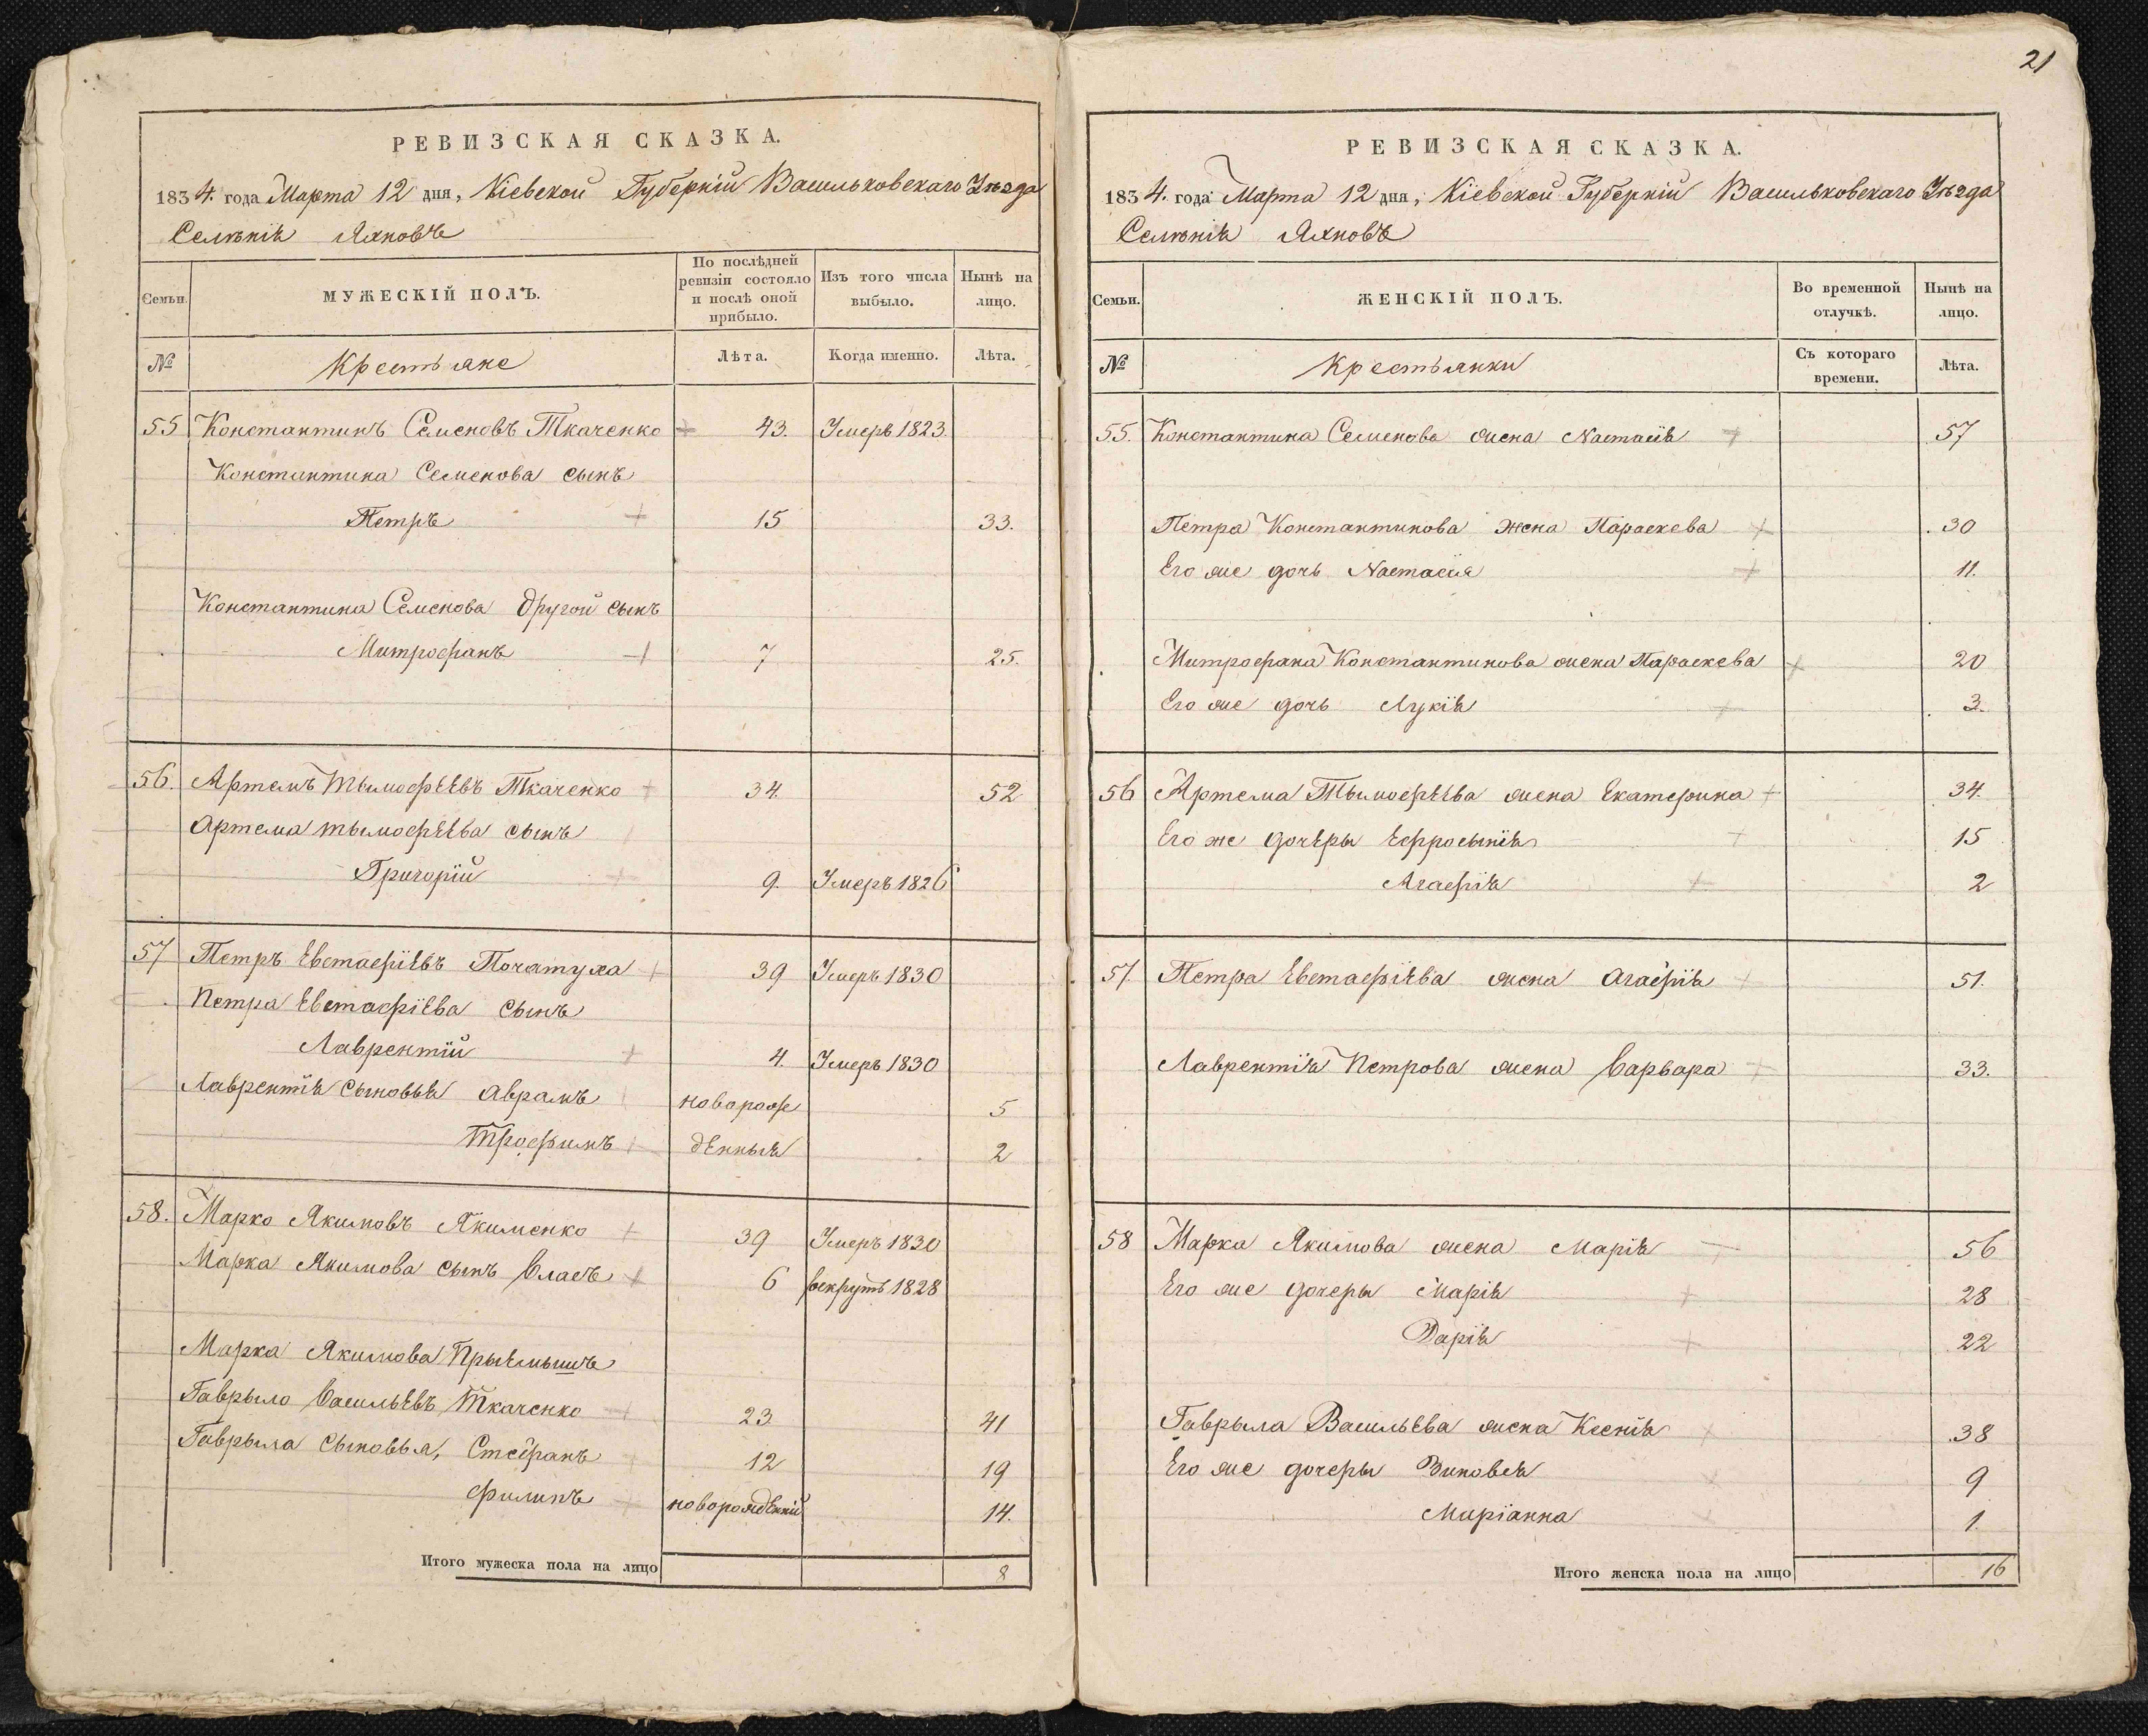 РЕВИЗСКАЯ СКАЗКА.
1834. года Марта 12 дня, Кіевской Губерніи Васильковскаго Уѣзда
Селенія Яхновъ
Семьи. МУЖЕСКІЙ ПОЛЪ. По послѣдней ревизіи состояло и послѣ оной прибыло. Изъ того числа выбыло. Нынѣ на лицо.
№ Крестьяне Лѣта. Когда именно. Лѣта.
55 Константинъ Семеновъ Ткаченко 43. Умеръ 1823.
Константина Семенова сынъ
Петръ 15 33.
Константина Семенова другой сынъ
Митрофанъ 7 25.
56. Артемъ Тымофеевъ Ткаченко 34. 52
Артема Тымофеева сынъ
Григорій 9. Умеръ 1826
57 Петръ Евстафіевъ Початуха 39 Умеръ 1830
Петра Евстафіева сынъ
Лаврентій 4. Умеръ 1830
Лаврентія сыновья Аврамъ новорож 5
Трофимъ денныя 2
58. Марко Якимовъ Якименко 39 Умеръ 1830
Марка Якимова сынъ Власъ 6 рекрутъ 1828
Марка Якимова Прыемышъ
Гаврыло Васильевъ Ткаченко 23 41
Гаврыла сыновья, Стефанъ 12 19
Филипъ новорожденній 14.
Итого мужеска пола на лицо 8
21
РЕВИЗСКАЯ СКАЗКА.
1834. года Марта 12 дня, Кіевской Губерніи Васильковскаго Уѣзда
Селенія Яхновъ
Семьи. ЖЕНСКІЙ ПОЛЪ. Во временной отлучкѣ. Нынѣ на лицо.
№ Крестьянки Съ котораго времени. Лѣта.
55. Константина Семенова жена Настасія 57
Петра Константинова жена Параскева 30
Его же дочь Настасія 11.
Митрофана Константинова жена Параскева 20
Его же дочь Лукія 3.
56 Артема Тымофеева жена Екатерина 34.
Его же дочеры Ефросынія 15
Агафія 2
57. Петра Евстафіева жена Агафія 51.
Лаврентія Петрова жена Варвара 33.
58 Марка Якимова жена Марія 56
Его же дочеры Марія 28
Дарія 22
Гаврыла Васильева жена Ксенія 38
Его же дочеры Зиновея 9
Маріанна 1.
Итого женска пола на лицо 16